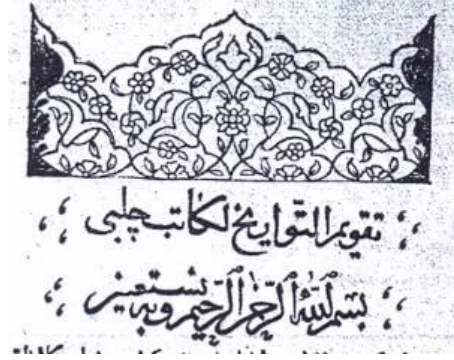 تقويم التواريخ لكاتب چلبى
بسم الله الرحمن الرحيم وبه نستعين